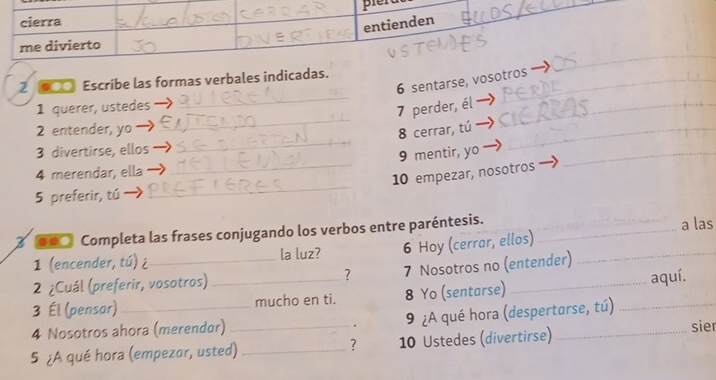 cierra CERRAR entienden ELLOS/ELL
me divierto YO DIVERTIRSE USTEDES
2 Escribe las formas verbales indicadas.
1 querer, ustedes → QUIEREN
2 entender, yo → ENTIENDO
3 divertirse, ellos → SE DIVIERTEN
4 merendar, ella →
5 preferir, tú → PREFIERES
6 sentarse, vosotros → OS
7 perder, él → PERDE
8 cerrar, tú → CIERRAS
9 mentir, yo →
10 empezar, nosotros →
3 Completa las frases conjugando los verbos entre paréntesis.
1 (encender, tú) ¿ la luz?
2 ¿Cuál (preferir, vosotros) ?
3 Él (pensar) mucho en ti.
4 Nosotros ahora (merendar) .
5 ¿A qué hora (empezar, usted) ?
6 Hoy (cerrar, ellos) a las
7 Nosotros no (entender)
8 Yo (sentarse) aquí.
9 ¿A qué hora (despertarse, tú)
10 Ustedes (divertirse) sier